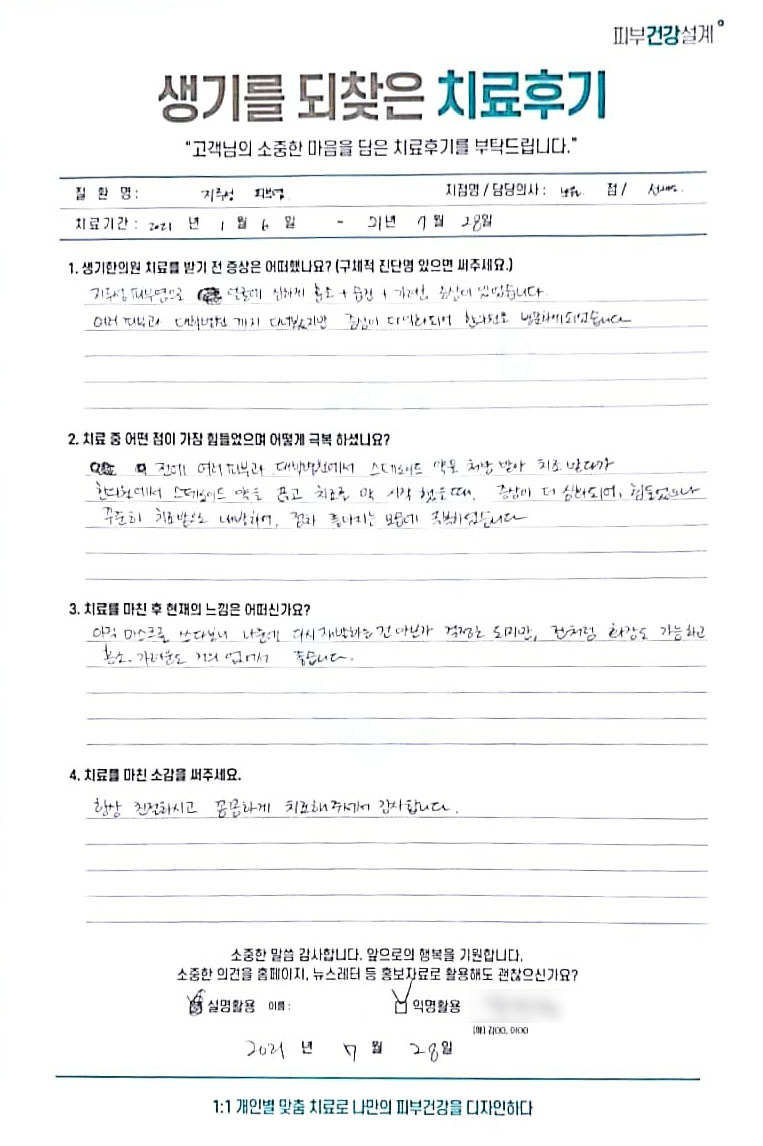 피부건강설계
생기를 되찾은 치료후기
"고객님의 소중한 마음을 담은 치료후기를 부탁드립니다."
질 환 명 : 지루성 피부염 지점명 / 담당의사 : 점 /
치료기간 : 2021 년 1 월 6 일 ~ 21년 7 월 28일
1. 생기한의원 치료를 받기 전 증상은 어떠했나요? (구체적 진단명 있으면 써주세요.)
지루성 피부염으로 얼굴에 심하게 홍조 + 습진 + 가려움 증상이 있었습니다.
여러 피부과 대학병원 까지 다녀봤지만 증상이 더 악화되어 한의원을 방문하게되었습니다
2. 치료 중 어떤 점이 가장 힘들었으며 어떻게 극복 하셨나요?
전에 여러 피부과, 대학병원에서 스테로이드 약을 처방 받아 치료 받다가
한의원에서 스테로이드 약을 끊고 치료를 막 시작 했을때, 증상이 더 심화되어, 힘들었으나
꾸준히 치료받으러 내방하여, 점차 좋아지는 모습에 극복하였습니다
3. 치료를 마친 후 현재의 느낌은 어떠신가요?
아직 마스크를 쓰다보니 나중에 다시 재발하는건 아닌가 걱정은 되지만, 전처럼 화장도 가능하고
홍조. 가려움도 거의 없어서 좋습니다.
4. 치료를 마친 소감을 써주세요.
항상 친절하시고 꼼꼼하게 치료해주셔서 감사합니다.
소중한 말씀 감사합니다. 앞으로의 행복을 기원합니다.
소중한 의견을 홈페이지, 뉴스레터 등 홍보자료로 활용해도 괜찮으신가요?
실명활용 이름 : 익명활용
(예) 김OO, 이OO
2021 년 7 월 28일
1:1 개인별 맞춤 치료로 나만의 피부건강을 디자인하다